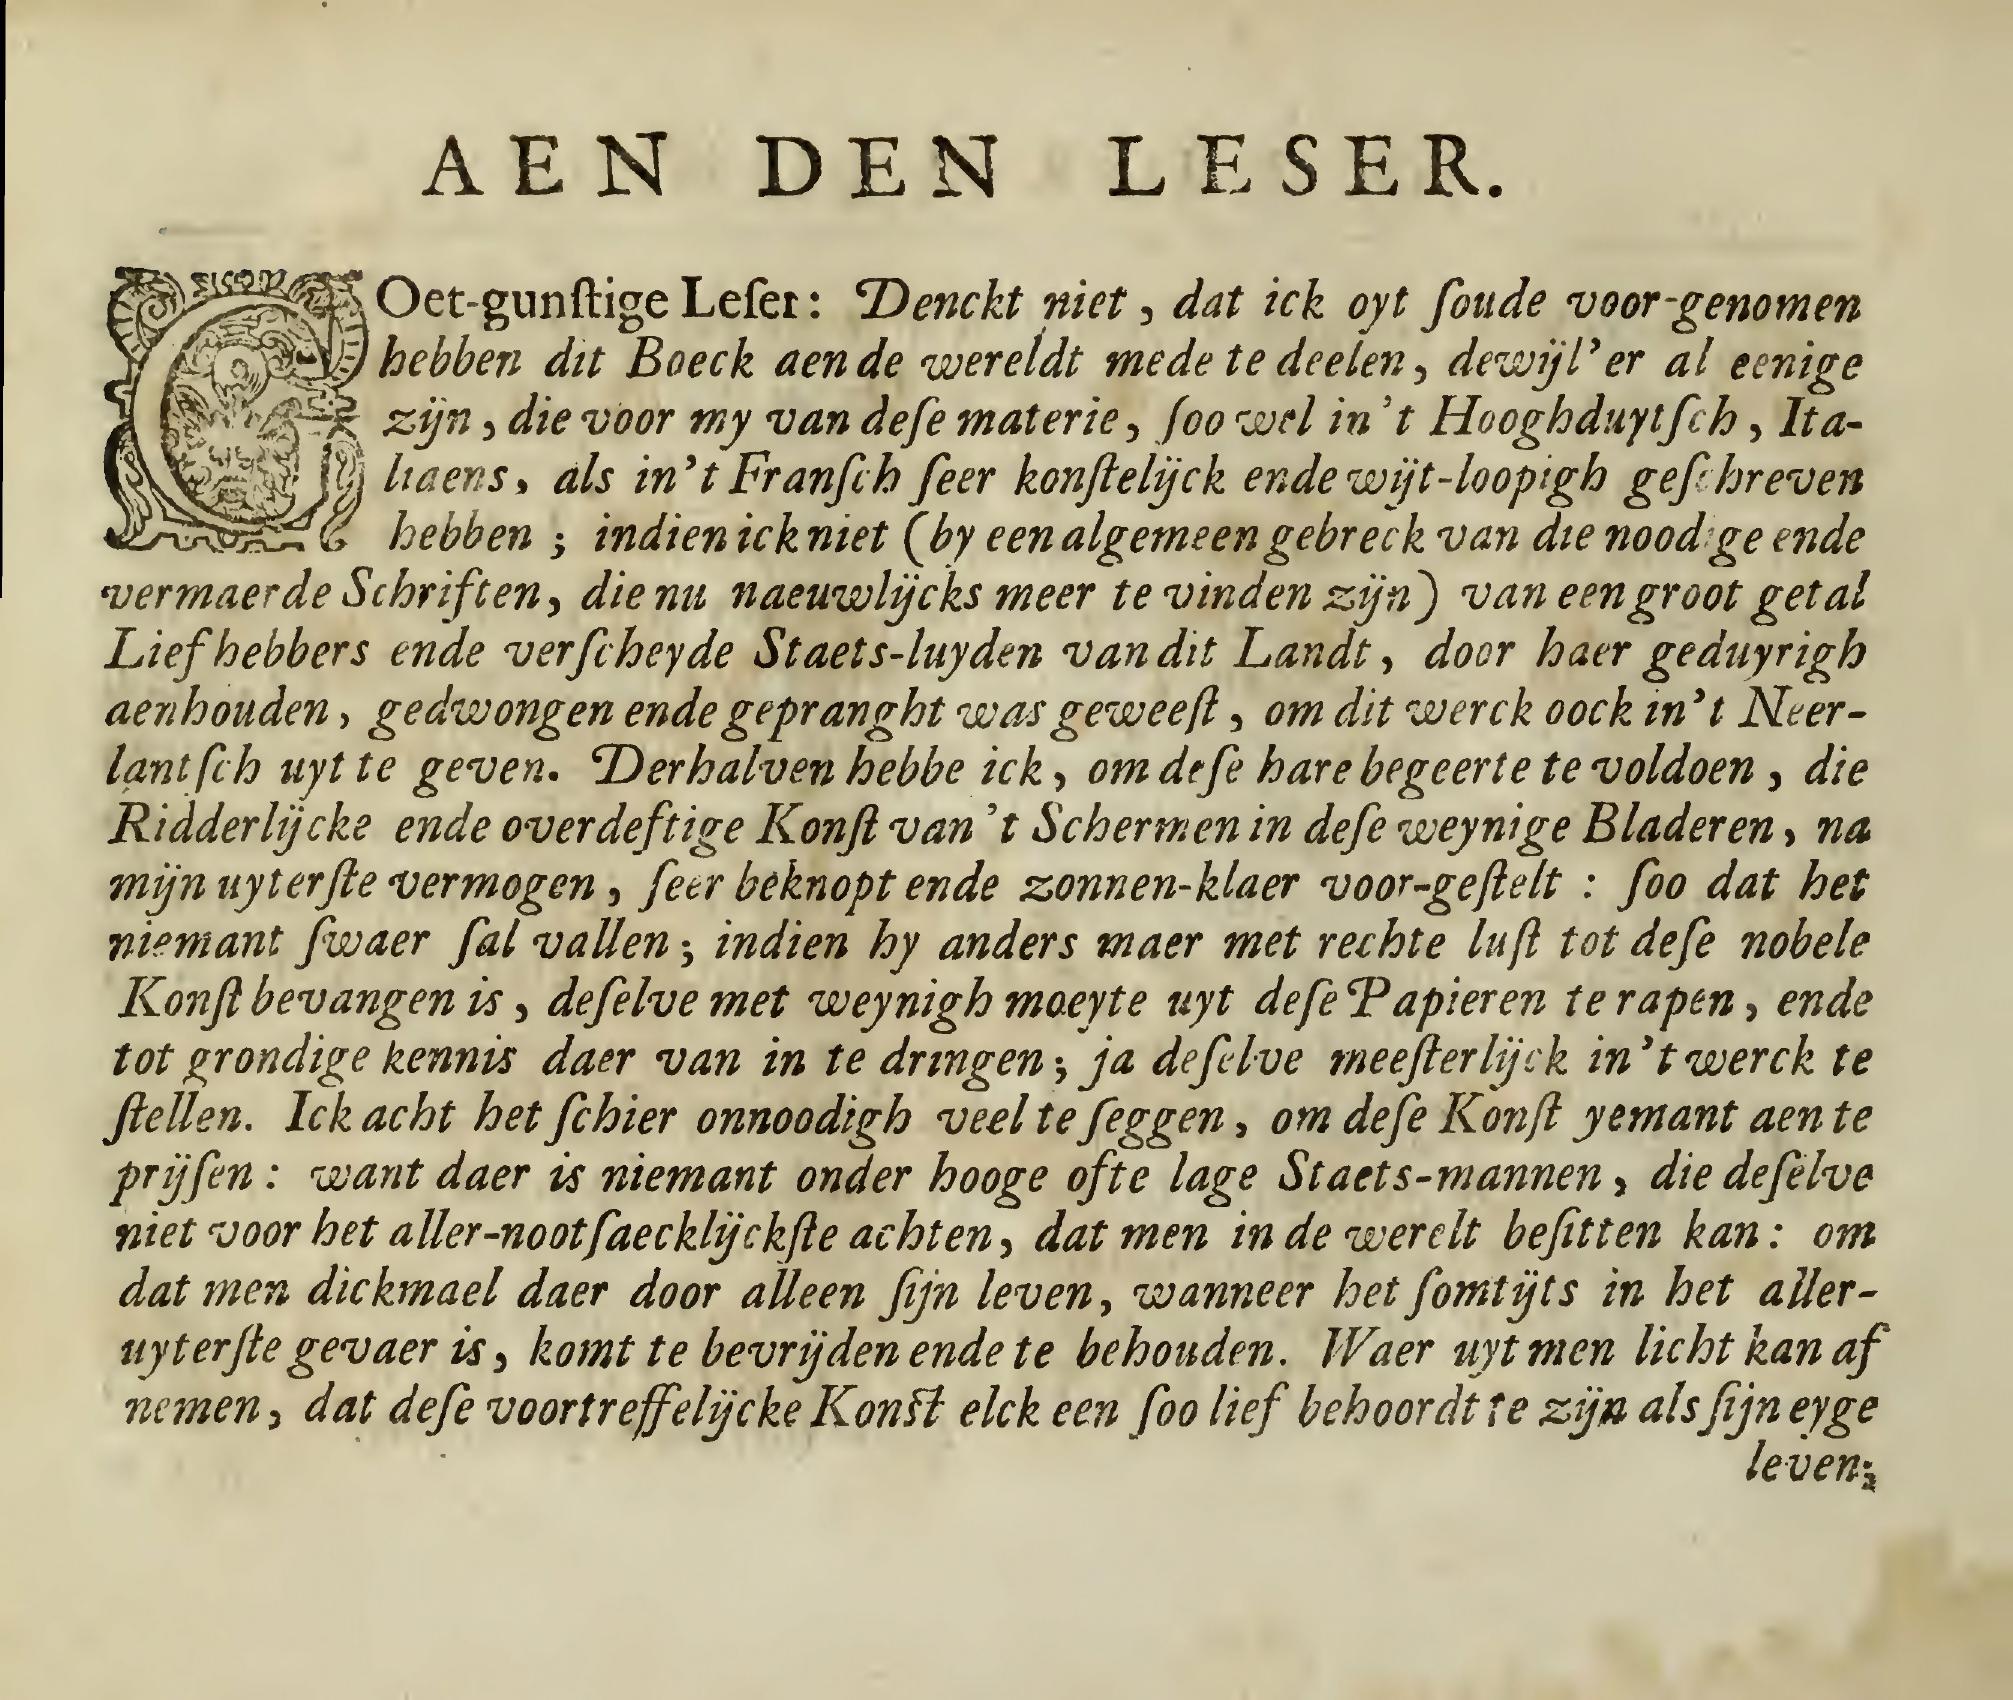 AEN DEN LESER.
GOet-gunſtige Leſer: Denckt niet, dat ick oyt ſoude voor-genomen
hebben dit Boeck aen de wereldt mede te deelen, dewijl'er al eenige
zijn, die voor my van deſe materie, ſoo wel in't Hooghduytſch, Ita-
liaens, als in't Franſch ſeer konſtelijck ende wijt-loopigh geſchreven
hebben; indien ick niet (by een algemeen gebreck van die noodige ende
vermaerde Schriften, die nu naeuwlijcks meer te vinden zijn) van een groot getal
Liefhebbers ende verſcheyde Staets-luyden van dit Landt, door haer geduyrigh
aenhouden, gedwongen ende gepranght was geweeſt, om dit werck oock in't Neer-
lantſch uyt te geven. Derhalven hebbe ick, om deſe hare begeerte te voldoen, die
Ridderlijcke ende overdeftige Konſt van't Schermen in deſe weynige Bladeren, na
mijn uyterſte vermogen, ſeer beknopt ende zonnen-klaer voor-geſtelt: ſoo dat het
niemant ſwaer ſal vallen; indien hy anders maer met rechte luſt tot deſe nobele
Konſt bevangen is, deſelve met weynigh moeyte uyt deſe Papieren te rapen, ende
tot grondige kennis daer van in te dringen; ja deſelve meeſterlijck in't werck te
ſtellen. Ick acht het ſchier onnoodigh veel te ſeggen, om deſe Konſt yemant aen te
prijſen: want daer is niemant onder hooge ofte lage Staets-mannen, die deſelve
niet voor het aller-nootſaecklijckſte achten, dat men in de werelt beſitten kan: om
dat men dickmael daer door alleen ſijn leven, wanneer het ſomtijts in het aller-
uyterſte gevaer is, komt te bevrijden ende te behouden. Waer uyt men licht kan af
nemen, dat deſe voortreffelijcke Konſt elck een ſoo lief behoordt te zijn als ſijn eyge
leven;